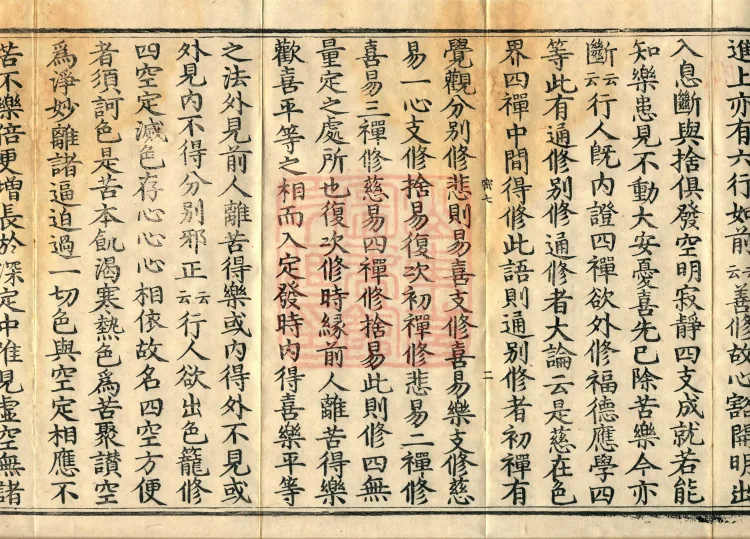 進上亦有六行如前云善修故心豁開明出
入息斷與捨俱發空明寂靜四支成就若能
知樂患見不動大安憂喜先已除苦樂今亦
斷云云行人旣內證四禪欲外修福德應學四
等此有通修別修通修者大論云是慈在色
界四禪中間得修此語則通別修者初禪有
密七
二
覺觀分別修悲則易喜支修喜易樂支修慈
易一心支修捨易復次初禪修悲易二禪修
喜易三禪修慈易四禪修捨易此則修四無
量定之處所也復次修時緣前人離苦得樂
歡喜平等之相而入定發時內得喜樂平等
之法外見前人離苦得樂或內得外不見或
外見內不得分別邪正云云行人欲出色籠修
四空定滅色存心心心相依故名四空方便
者須訶色是苦本飢渴寒熱色爲苦聚讚空
爲淨妙離諸逼迫過一切色與空定相應不
苦不樂倍更增長於深定中唯見虛空無諸